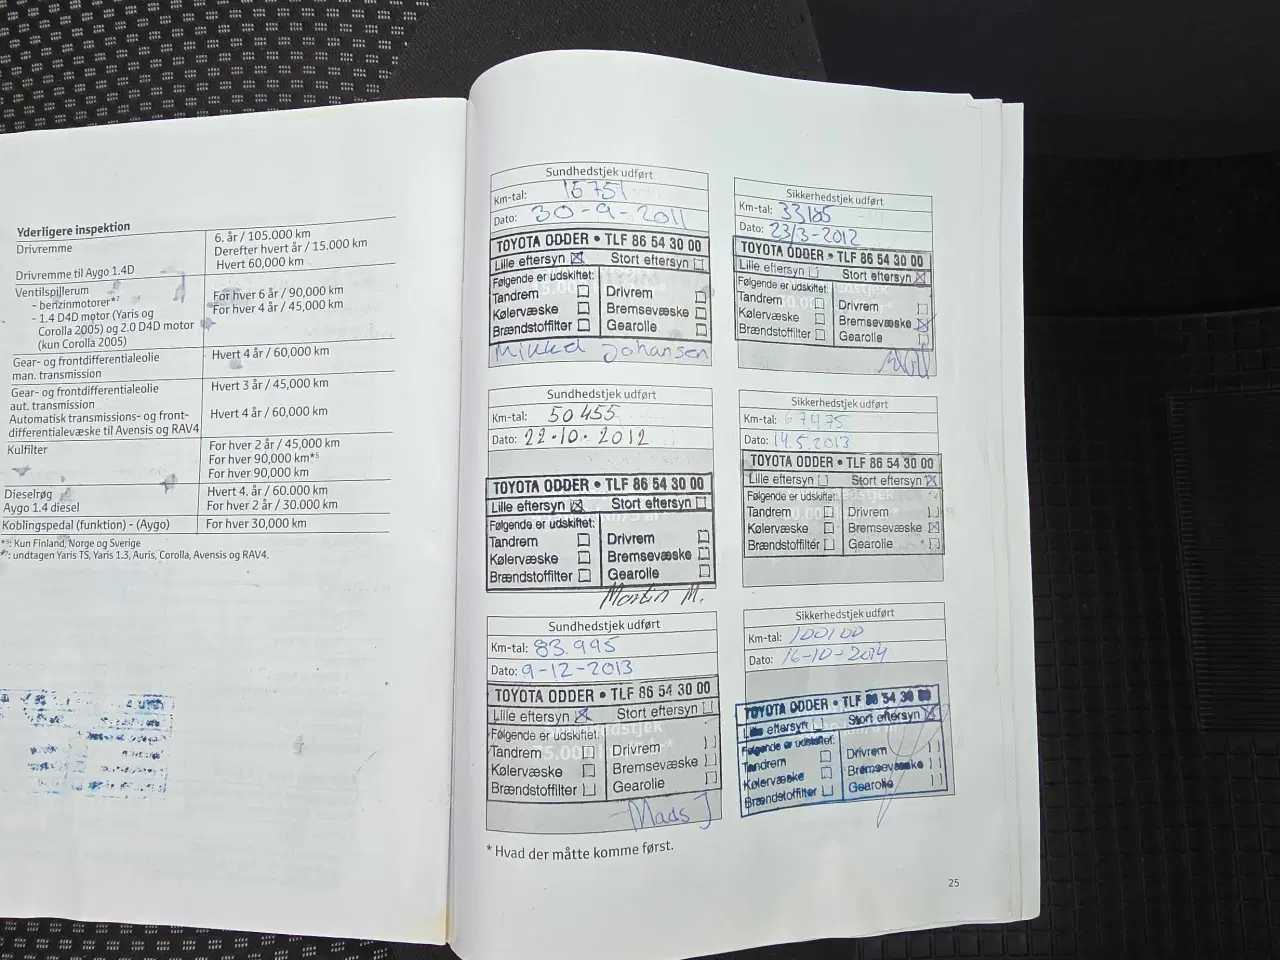 Yderligere inspektion
Drivremme 6. år / 105.000 km
Derefter hvert år / 15.000 km
Drivremme til Aygo 1.4D Hvert 60,000 km
Ventilspillerum
- benzinmotorer*⁷ For hver 6 år / 90,000 km
- 1.4 D4D motor (Yaris og For hver 4 år / 45,000 km
Corolla 2005) og 2.0 D4D motor
(kun Corolla 2005)
Gear- og frontdifferentialeolie Hvert 4 år / 60,000 km
man. transmission
Gear- og frontdifferentialeolie Hvert 3 år / 45,000 km
aut. transmission
Automatisk transmissions- og front- Hvert 4 år / 60,000 km
differentialevæske til Avensis og RAV4
Kulfilter For hver 2 år / 45,000 km
For hver 90,000 km*⁵
For hver 90,000 km
Dieselrøg Hvert 4. år / 60.000 km
Aygo 1.4 diesel For hver 2 år / 30.000 km
Koblingspedal (funktion) - (Aygo) For hver 30,000 km
: Kun Finland, Norge og Sverige
: undtagen Yaris TS, Yaris 1.3, Auris, Corolla, Avensis og RAV4.
Sundhedstjek udført
Km-tal: 16751
Dato: 30-9-2011
TOYOTA ODDER • TLF 86 54 30 00
Lille eftersyn Stort eftersyn
Følgende er udskiftet:
Tandrem Drivrem
Kølervæske Bremsevæske
Brændstoffilter Gearolie
Mikkel Johansen
Sikkerhedstjek udført
Km-tal: 33185
Dato: 23/3-2012
TOYOTA ODDER • TLF 86 54 30 00
Lille eftersyn Stort eftersyn
Følgende er udskiftet:
Tandrem Drivrem
Kølervæske Bremsevæske
Brændstoffilter Gearolie
Sundhedstjek udført
Km-tal: 50455
Dato: 22-10-2012
TOYOTA ODDER • TLF 86 54 30 00
Lille eftersyn Stort eftersyn
Følgende er udskiftet:
Tandrem Drivrem
Kølervæske Bremsevæske
Brændstoffilter Gearolie
Martin M.
Sikkerhedstjek udført
Km-tal: 67475
Dato: 14.5.2013
TOYOTA ODDER • TLF 86 54 30 00
Lille eftersyn Stort eftersyn
Følgende er udskiftet:
Tandrem Drivrem
Kølervæske Bremsevæske
Brændstoffilter Gearolie
Sundhedstjek udført
Km-tal: 83.995
Dato: 9-12-2013
TOYOTA ODDER • TLF 86 54 30 00
Lille eftersyn Stort eftersyn
Følgende er udskiftet:
Tandrem Drivrem
Kølervæske Bremsevæske
Brændstoffilter Gearolie
Mads J
Sikkerhedstjek udført
Km-tal: 100100
Dato: 16-10-2014
TOYOTA ODDER • TLF 86 54 30 00
Lille eftersyn Stort eftersyn
Følgende er udskiftet:
Tandrem Drivrem
Kølervæske Bremsevæske
Brændstoffilter Gearolie
* Hvad der måtte komme først.
25